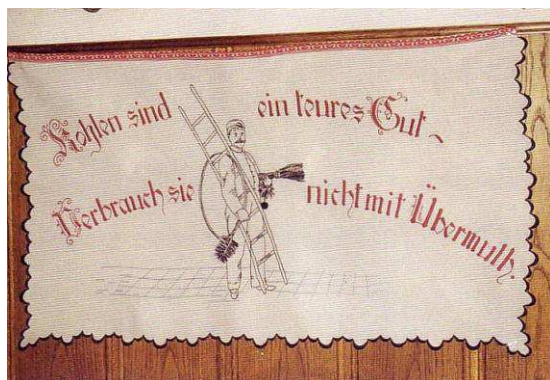 Kohlen sind ein teures Gut ~
Verbrauch sie nicht mit Übermuth.